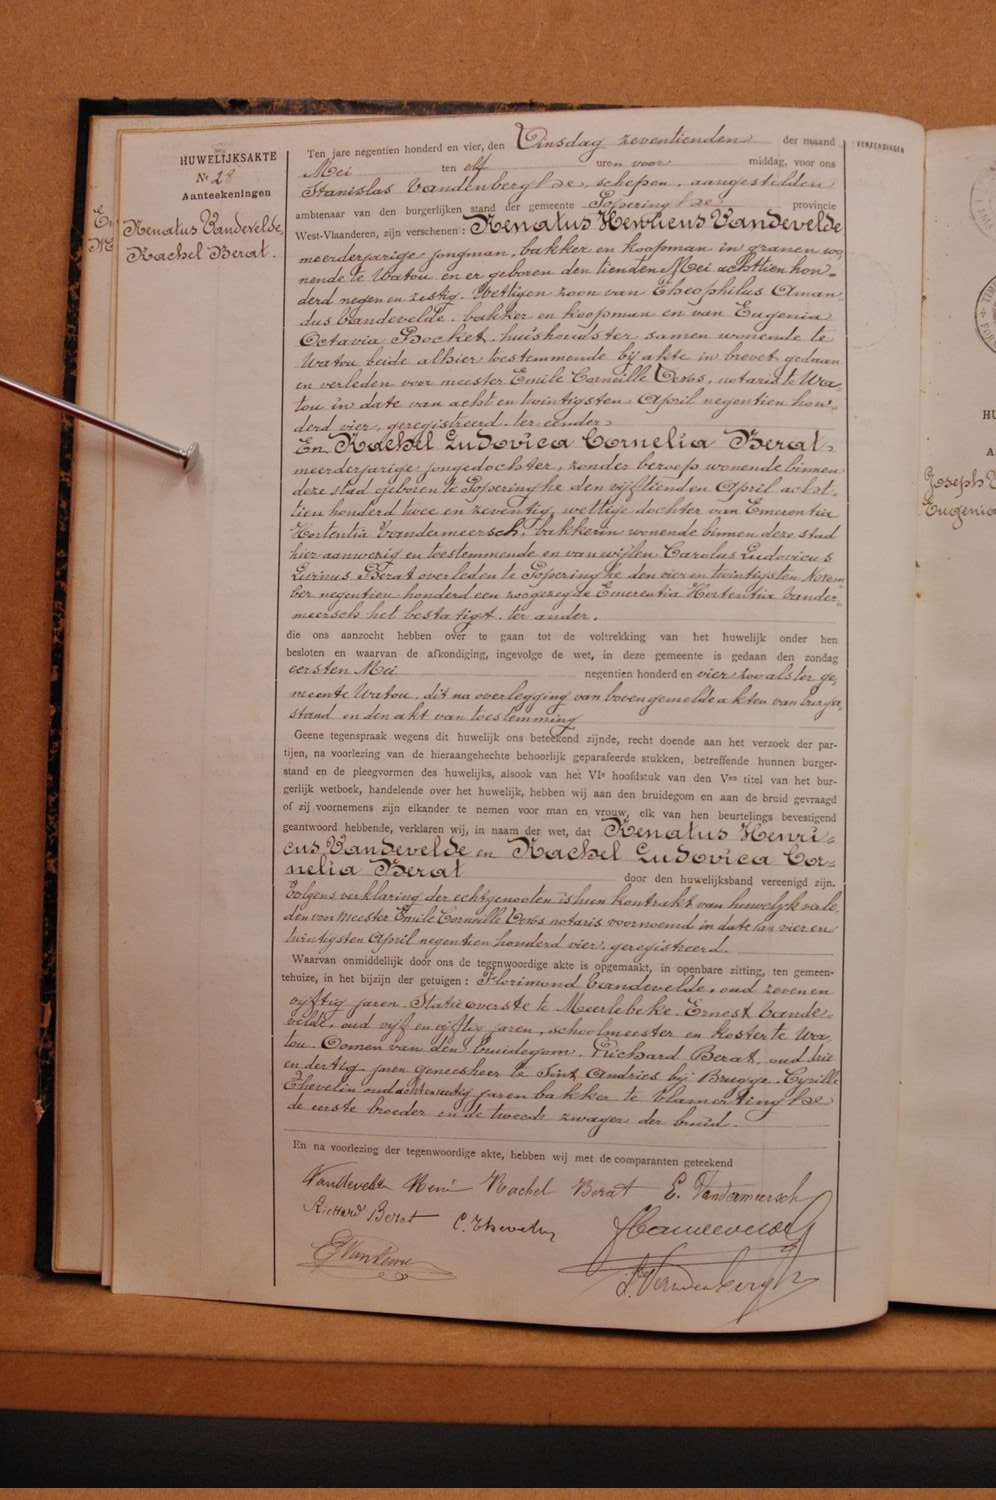 HUWELIJKSAKTE
Nr 28
Aanteekeningen
Renatus Vandevelde,
Rachel Berat.
Ten jare negentien honderd en vier, den Dinsdag zeventienden der maand
Mei ten elf uren voor middag, voor ons
Stanislas Vandenberghe, schepen, aangestelden
ambtenaar van den burgerlijken stand der gemeente Poperinghe provincie
West-Vlaanderen, zijn verschenen : Renatus Henricus Vandevelde
meerderjarige jongman, bakker en koopman in granen wo-
nende te Watou en er geboren den tienden Mei achttien hon-
derd negen en zestig. Wettigen zoon van Theophilus Aman-
dus Vandevelde, bakker en koopman en van Eugenia
Octavia huishoudster samen wonende te
Watou beide alhier toestemmende bij akte in brevet gedaan
en verleden voor meester Emile Corneille notaris te Wa-
tou in date van acht en twintigsten April negentien hon-
derd vier, geregistreerd, ter eender
En Rachel Ludovica Cornelia Berat
meerderjarige jongedochter, zonder beroep wonende binnen
deze stad geboren te Poperinghe den vijftienden April acht-
tien honderd twee en zeventig, wettige dochter van Emerentia
Hortentia Vandermeersch, bakkerin wonende binnen deze stad
hier aanwezig en toestemmende en van wijlen Carolus Ludovicus
Livinus Berat overleden te Poperinghe den vier en twintigsten Novem-
ber negentien honderd een zoogezegde Emerentia Hortentia Vander-
meersch het bestatigt. ter ander.
die ons aanzocht hebben over te gaan tot de voltrekking van het huwelijk onder hen
besloten en waarvan de afkondiging, ingevolge de wet, in deze gemeente is gedaan den zondag
eersten Mei negentien honderd en vier zoo als ter ge-
meente Watou, dit na overlegging van bovengemelde akten van burger-
stand en den akt van toestemming
Geene tegenspraak wegens dit huwelijk ons beteekend zijnde, recht doende aan het verzoek der par-
tijen, na voorlezing van de hieraangehechte behoorlijk geparafeerde stukken, betreffende hunnen burger-
stand en de pleegvormen des huwelijks, alsook van het VIe hoofdstuk van den Ven titel van het bur-
gerlijk wetboek, handelende over het huwelijk, hebben wij aan den bruidegom en aan de bruid gevraagd
of zij voornemens zijn elkander te nemen voor man en vrouw, elk van hen beurtelings bevestigend
geantwoord hebbende, verklaren wij, in naam der wet, dat Renatus Henri-
cus Vandevelde en Rachel Ludovica Cor-
nelia Berat door den huwelijksband vereenigd zijn.
Volgens verklaring der echtgenooten is hun kontrakt van huwelijk verle-
den voor meester Emile Corneille notaris voornoemd in date van vier en
twintigsten April negentien honderd vier, geregistreerd.
Waarvan onmiddellijk door ons de tegenwoordige akte is opgemaakt, in openbare zitting, ten gemeen-
tehuize, in het bijzijn der getuigen : Florimond Vandevelde, oud zeven en
vijftig jaren Statieoverste te Meerlebeke. Ernest Vande-
velde, oud vijf en vijftig jaren, schoolmeester en koster te Wa-
tou. Oomen van den bruidegom. Richard Berat, oud drie
en dertig jaren geneesheer te Sint Andries bij Brugge. Cyrille
Thevelin oud achtenveertig jaren bakker te Vlamertinghe
de eerste broeder en de tweede zwager der bruid.
En na voorlezing der tegenwoordige akte, hebben wij met de comparanten geteekend
Vandevelde René Rachel Berat E. Vandermeersch
Richard Berat C. Thevelin
S. Vandenberghe
VERZENDINGEN
Joseph V
Eugenia